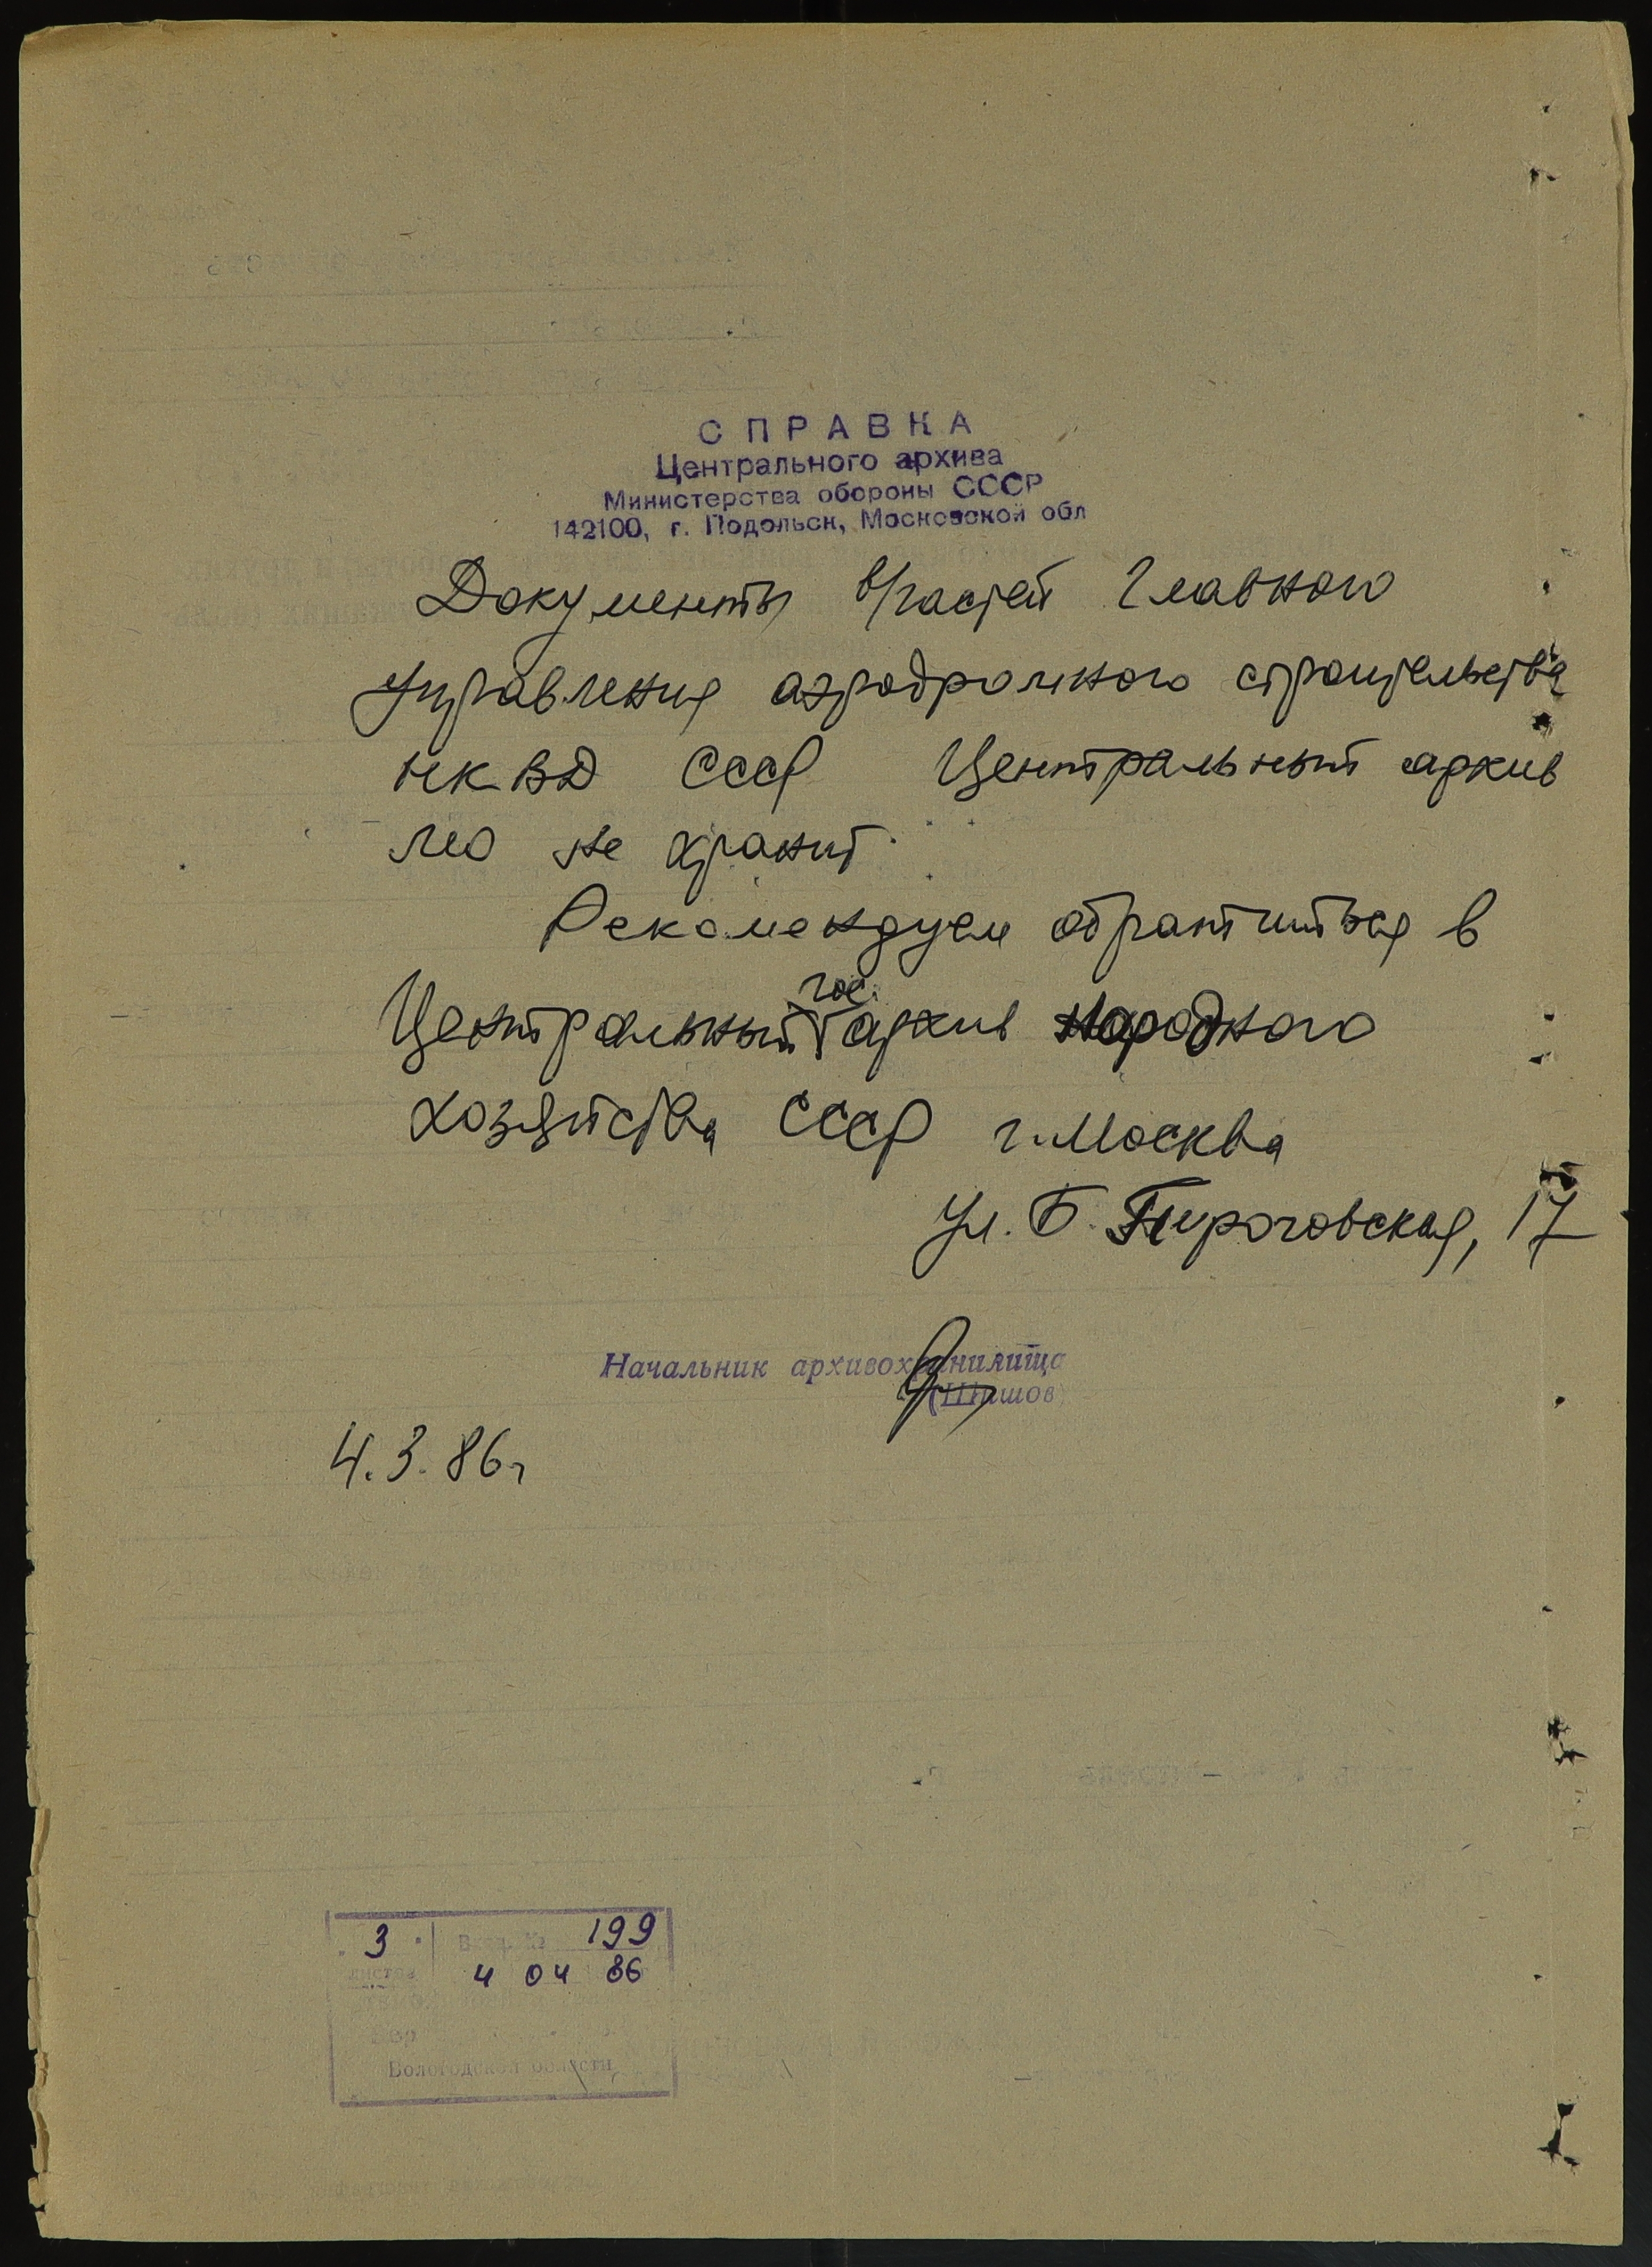 СПРАВКА
Центрального архива
Министерства обороны СССР
142100, г. Подольск, Московской обл
Документы в/частей Главного
управления аэродромного строительства
НКВД СССР Центральный архив
МО не хранит.
Рекомендуем обратиться в
Центральный гос. архив народного
хозяйства СССР г. Москва
ул. Б. Пироговская, 17
Начальник архивохранилища
(Шишов)
4.3.86г
3 Вход. № 199
листов 4 04 86
Вологодской области